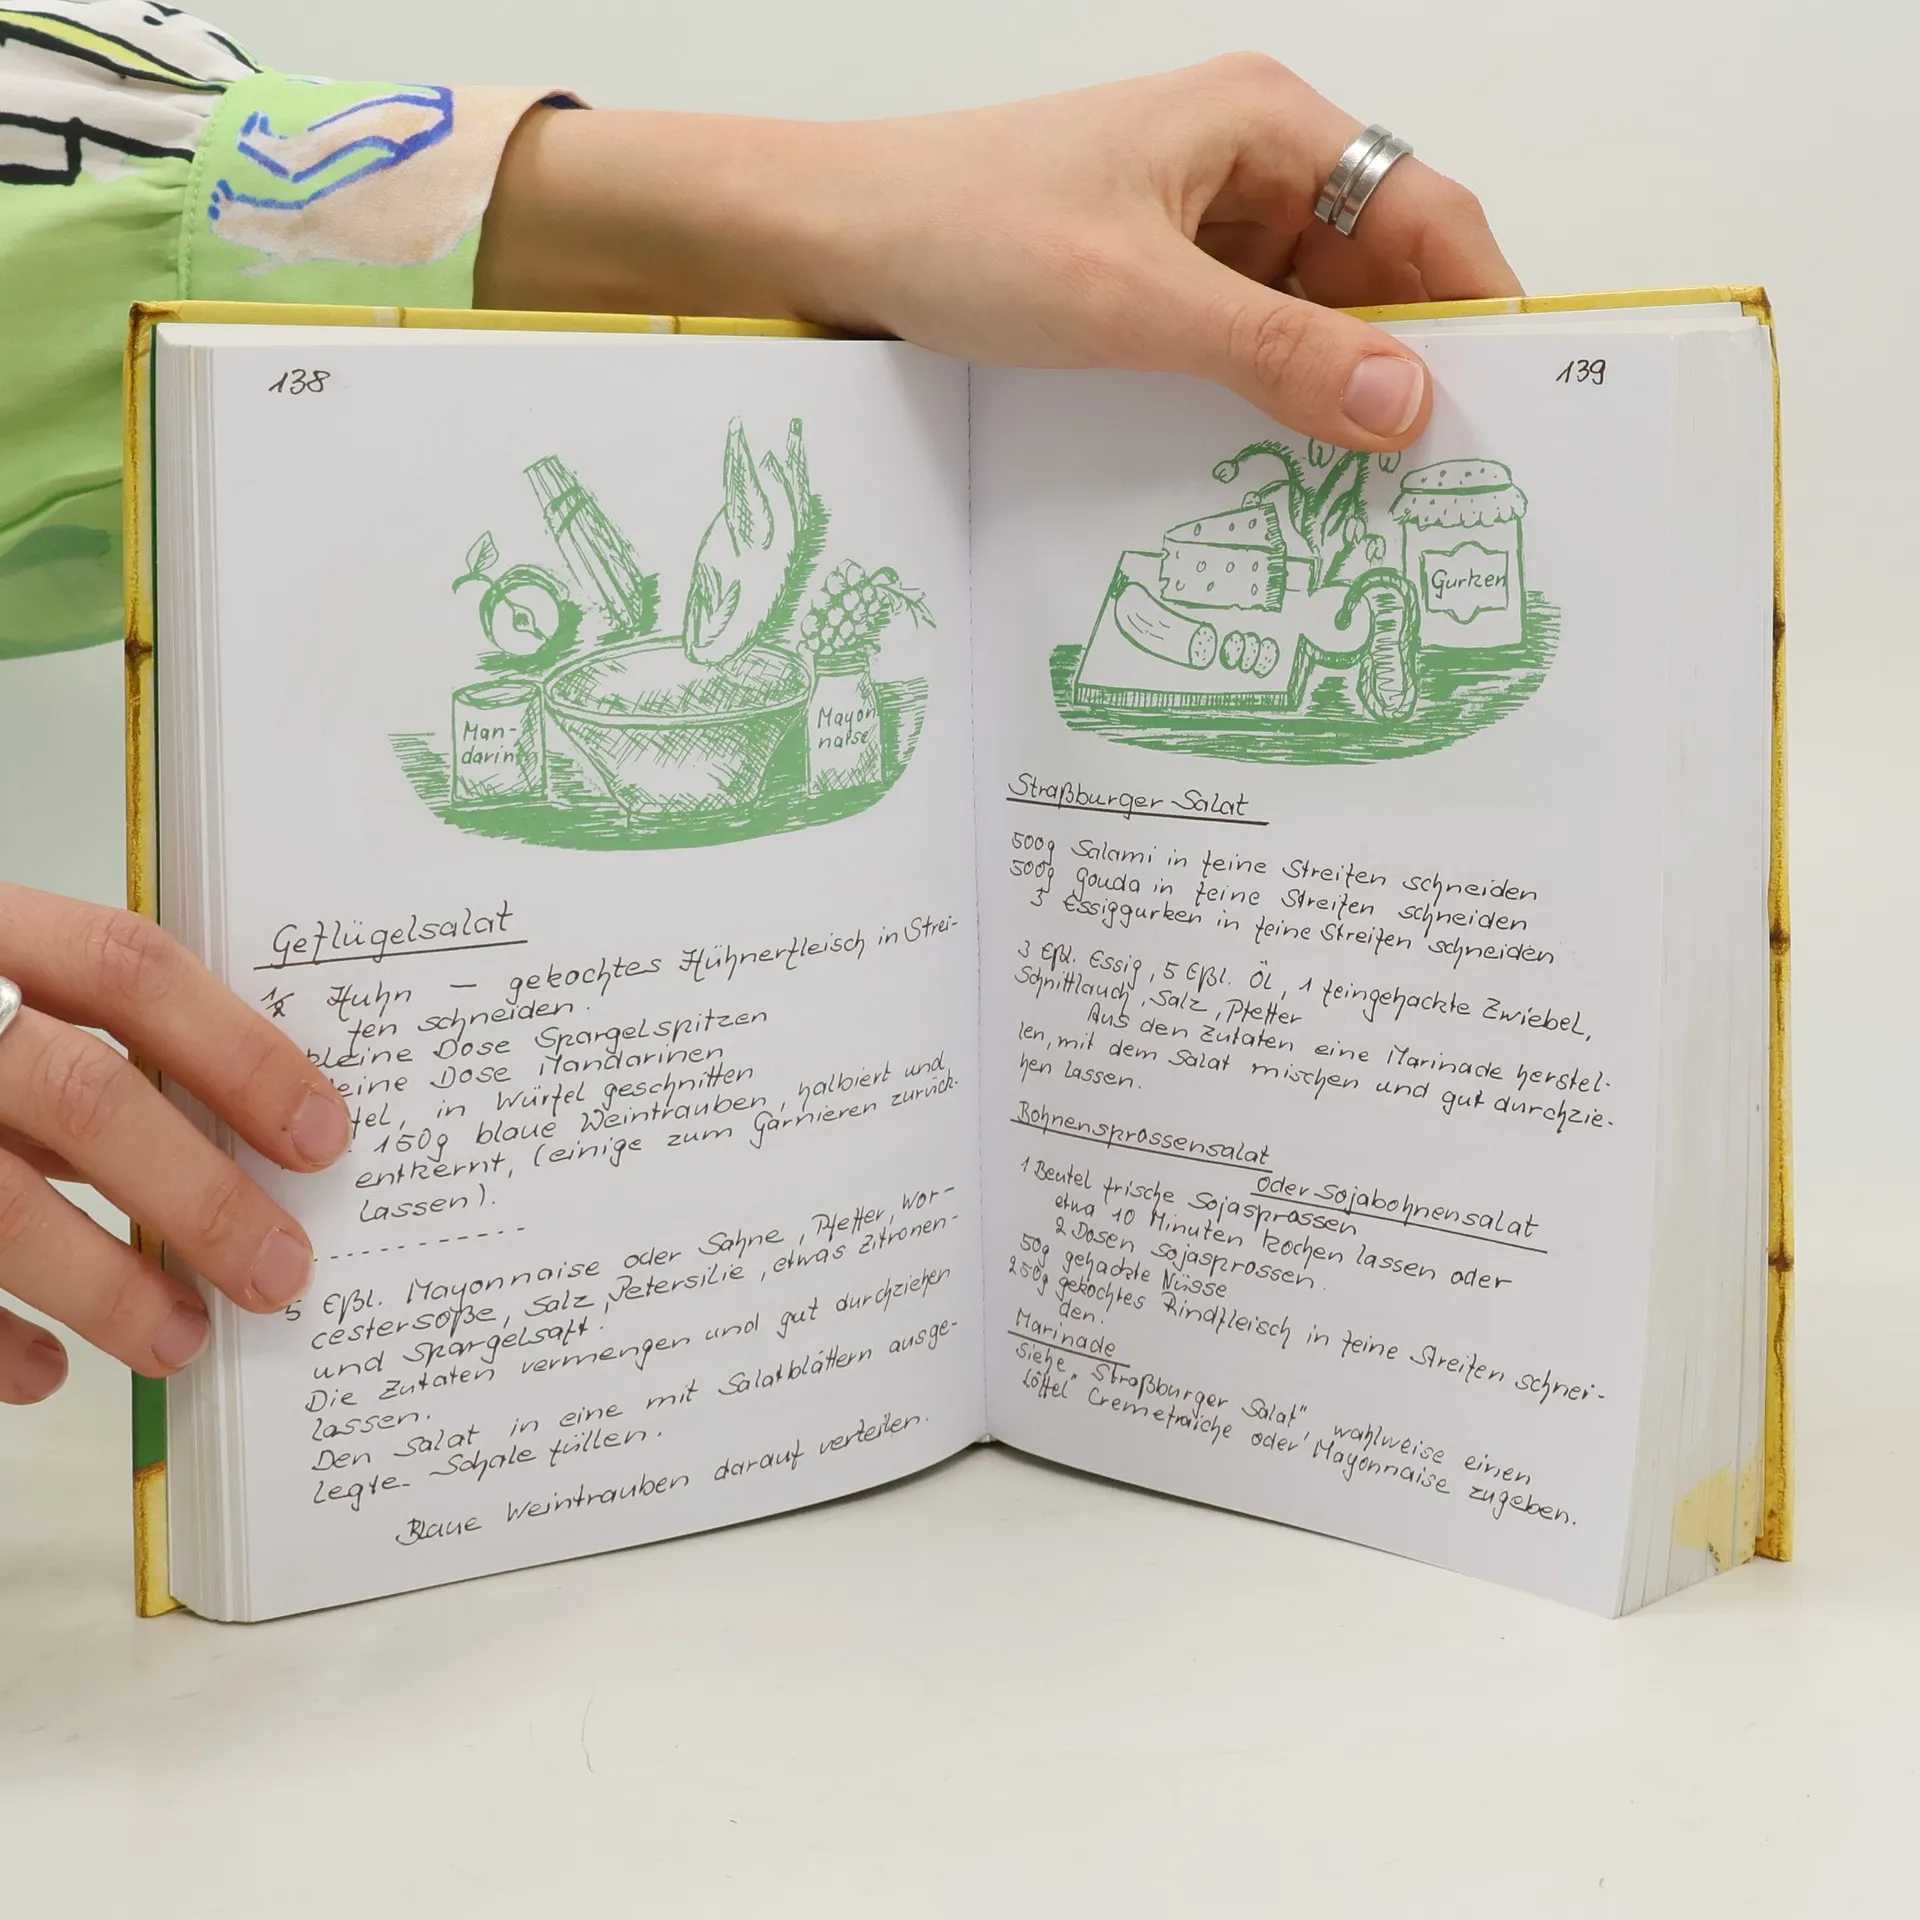 138
Man-
darin
Mayon
naise
Geflügelsalat
Huhn — gekochtes Hühnerfleisch in Strei-
fen schneiden.
kleine Dose Spargelspitzen
eine Dose Mandarinen
fel, in Würfel geschnitten
150g blaue Weintrauben, halbiert und
entkernt, (einige zum Garnieren zurück-
lassen).
5 Eßl. Mayonnaise oder Sahne, Pfeffer, Wor-
cestersoße, Salz, Petersilie, etwas Zitronen-
und Spargelsaft.
Die Zutaten vermengen und gut durchziehen
lassen.
Den Salat in eine mit Salatblättern ausge-
legte Schale füllen.
Blaue Weintrauben darauf verteilen.
139
Gurken
Straßburger Salat
500g Salami in feine Streifen schneiden
500g Gouda in feine Streifen schneiden
3 Essiggurken in feine Streifen schneiden
3 Eßl. Essig, 5 Eßl. Öl, 1 feingehackte Zwiebel,
Schnittlauch, Salz, Pfeffer
Aus den Zutaten eine Marinade herstel-
len, mit dem Salat mischen und gut durchzie-
hen lassen.
Bohnensprossensalat
oder Sojabohnensalat
1 Beutel frische Sojasprossen
etwa 10 Minuten kochen lassen oder
2 Dosen Sojasprossen.
50g gehackte Nüsse
250g gekochtes Rindfleisch in feine Streifen schnei-
den.
Marinade
siehe "Straßburger Salat", wahlweise einen
Löffel" Cremefraiche oder Mayonnaise zugeben.